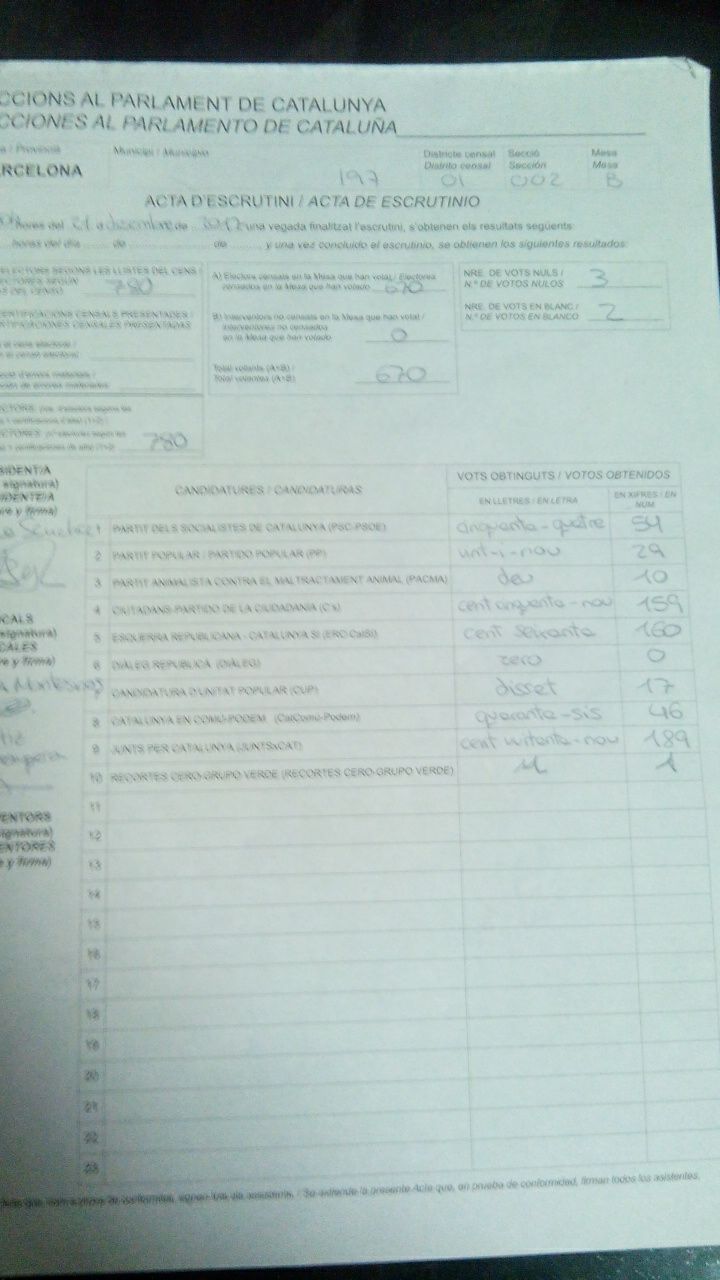 CCIONS AL PARLAMENT DE CATALUNYA
CCIONES AL PARLAMENTO DE CATALUÑA
a / Provincia Municipi / Municipio Districte censal Secció Mesa
Distrito censal Sección Mesa
RCELONA 197 01 002 B
ACTA D'ESCRUTINI / ACTA DE ESCRUTINIO
hores del 21 de 2017 una vegada finalitzat l'escrutini, s'obtenen els resultats següents:
horas del día de de y una vez concluido el escrutinio, se obtienen los siguientes resultados:
ELECTORS SEGONS LES LLISTES DEL CENS /
780
A) Electors censats en la Mesa que han votat / Electores
censados en la Mesa que han votado 670
B) Interventors no censats en la Mesa que han votat /
Interventores no censados
en la Mesa que han votado 0
Total votants (A+B) /
Total votantes (A+B) 670
NRE. DE VOTS NULS /
N.º DE VOTOS NULOS 3
NRE. DE VOTS EN BLANC /
N.º DE VOTOS EN BLANCO 2
ENTIFICACIONS CENSALS PRESENTADES /
NTIFICACIONES CENSALES PRESENTADAS
780
SIDENT/A
signatura)
IDENTE/A
re y firma)
CALS
signatura)
CALES
re y firma)
ENTORS
signatura)
ENTORES
e y firma)
CANDIDATURES / CANDIDATURAS VOTS OBTINGUTS / VOTOS OBTENIDOS
EN LLETRES / EN LETRA EN XIFRES / EN NUM
1 PARTIT DELS SOCIALISTES DE CATALUNYA (PSC-PSOE) cinquanta-quatre 54
2 PARTIT POPULAR / PARTIDO POPULAR (PP) vint-i-nou 29
3 PARTIT ANIMALISTA CONTRA EL MALTRACTAMENT ANIMAL (PACMA) deu 10
4 CIUTADANS-PARTIDO DE LA CIUDADANÍA (C's) cent cinquanta-nou 159
5 ESQUERRA REPUBLICANA - CATALUNYA SÍ (ERC-CatSí) cent seixanta 160
6 DIÀLEG REPÚBLICA (DIÀLEG) zero 0
7 CANDIDATURA D'UNITAT POPULAR (CUP) disset 17
8 CATALUNYA EN COMÚ-PODEM (CatComú-Podem) quaranta-sis 46
9 JUNTS PER CATALUNYA (JUNTSxCAT) cent vuitanta-nou 189
10 RECORTES CERO-GRUPO VERDE (RECORTES CERO-GRUPO VERDE) 1
11
12
13
14
15
16
17
18
19
20
21
22
23
Se extiende la presente Acta que, en prueba de conformidad, firman todos los asistentes.